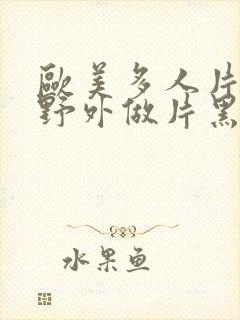 歐美多人片
野外做片黑
水果鱼